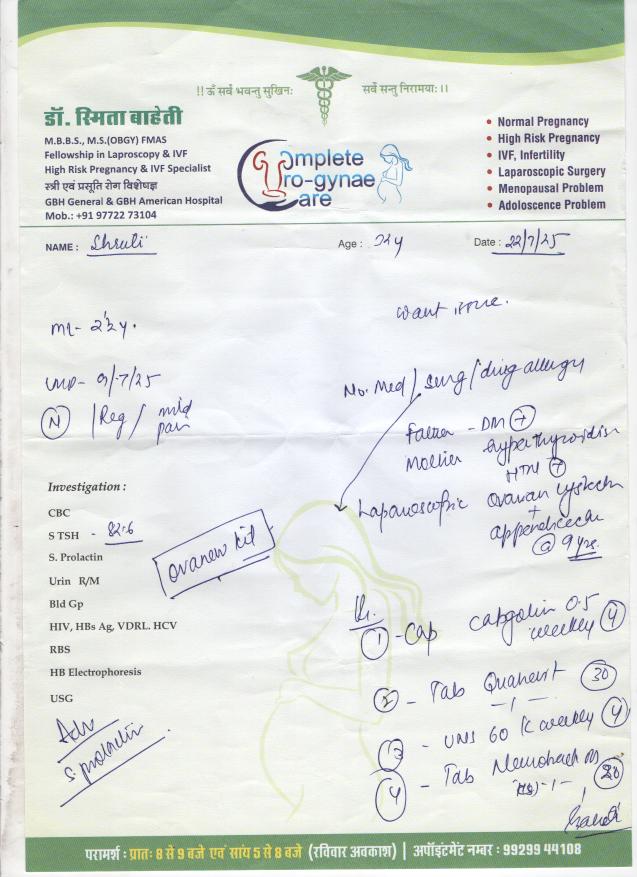 !! ॐ सर्वे भवन्तु सुखिनः सर्वे सन्तु निरामयाः ।।
डॉ. स्मिता बाहेती
M.B.B.S., M.S.(OBGY) FMAS
Fellowship in Laproscopy & IVF
High Risk Pregnancy & IVF Specialist
स्त्री एवं प्रसूति रोग विशेषज्ञ
GBH General & GBH American Hospital
Mob.: +91 97722 73104
Complete
Uro-gynae
Care
• Normal Pregnancy
• High Risk Pregnancy
• IVF, Infertility
• Laparoscopic Surgery
• Menopausal Problem
• Adoloscence Problem
NAME : Shruti Age : Date : 22/7/25
want issue.
LMP- 9/7/25
No. Med / surg / drug allergy
(N) / Reg / mild pain
Father - DM (+)
Mother hyperthyroidism
HTN (+)
Laparoscopic ovarian
+
@ 9 yrs.
Investigation :
CBC
S TSH -
S. Prolactin
Urin R/M
Bld Gp
HIV, HBs Ag, VDRL. HCV
RBS
HB Electrophoresis
USG
ovanew kit
Adv
S. prolactin
(1) - Cap 0.5
weekly (4)
(2) - Tab (30)
-1-
(3) - 60 K weekly (4)
(4) - Tab
(HS) -1-
परामर्श : प्रातः 8 से 9 बजे एवं सांय 5 से 8 बजे (रविवार अवकाश) | अपॉइंटमेंट नम्बर : 99299 44108